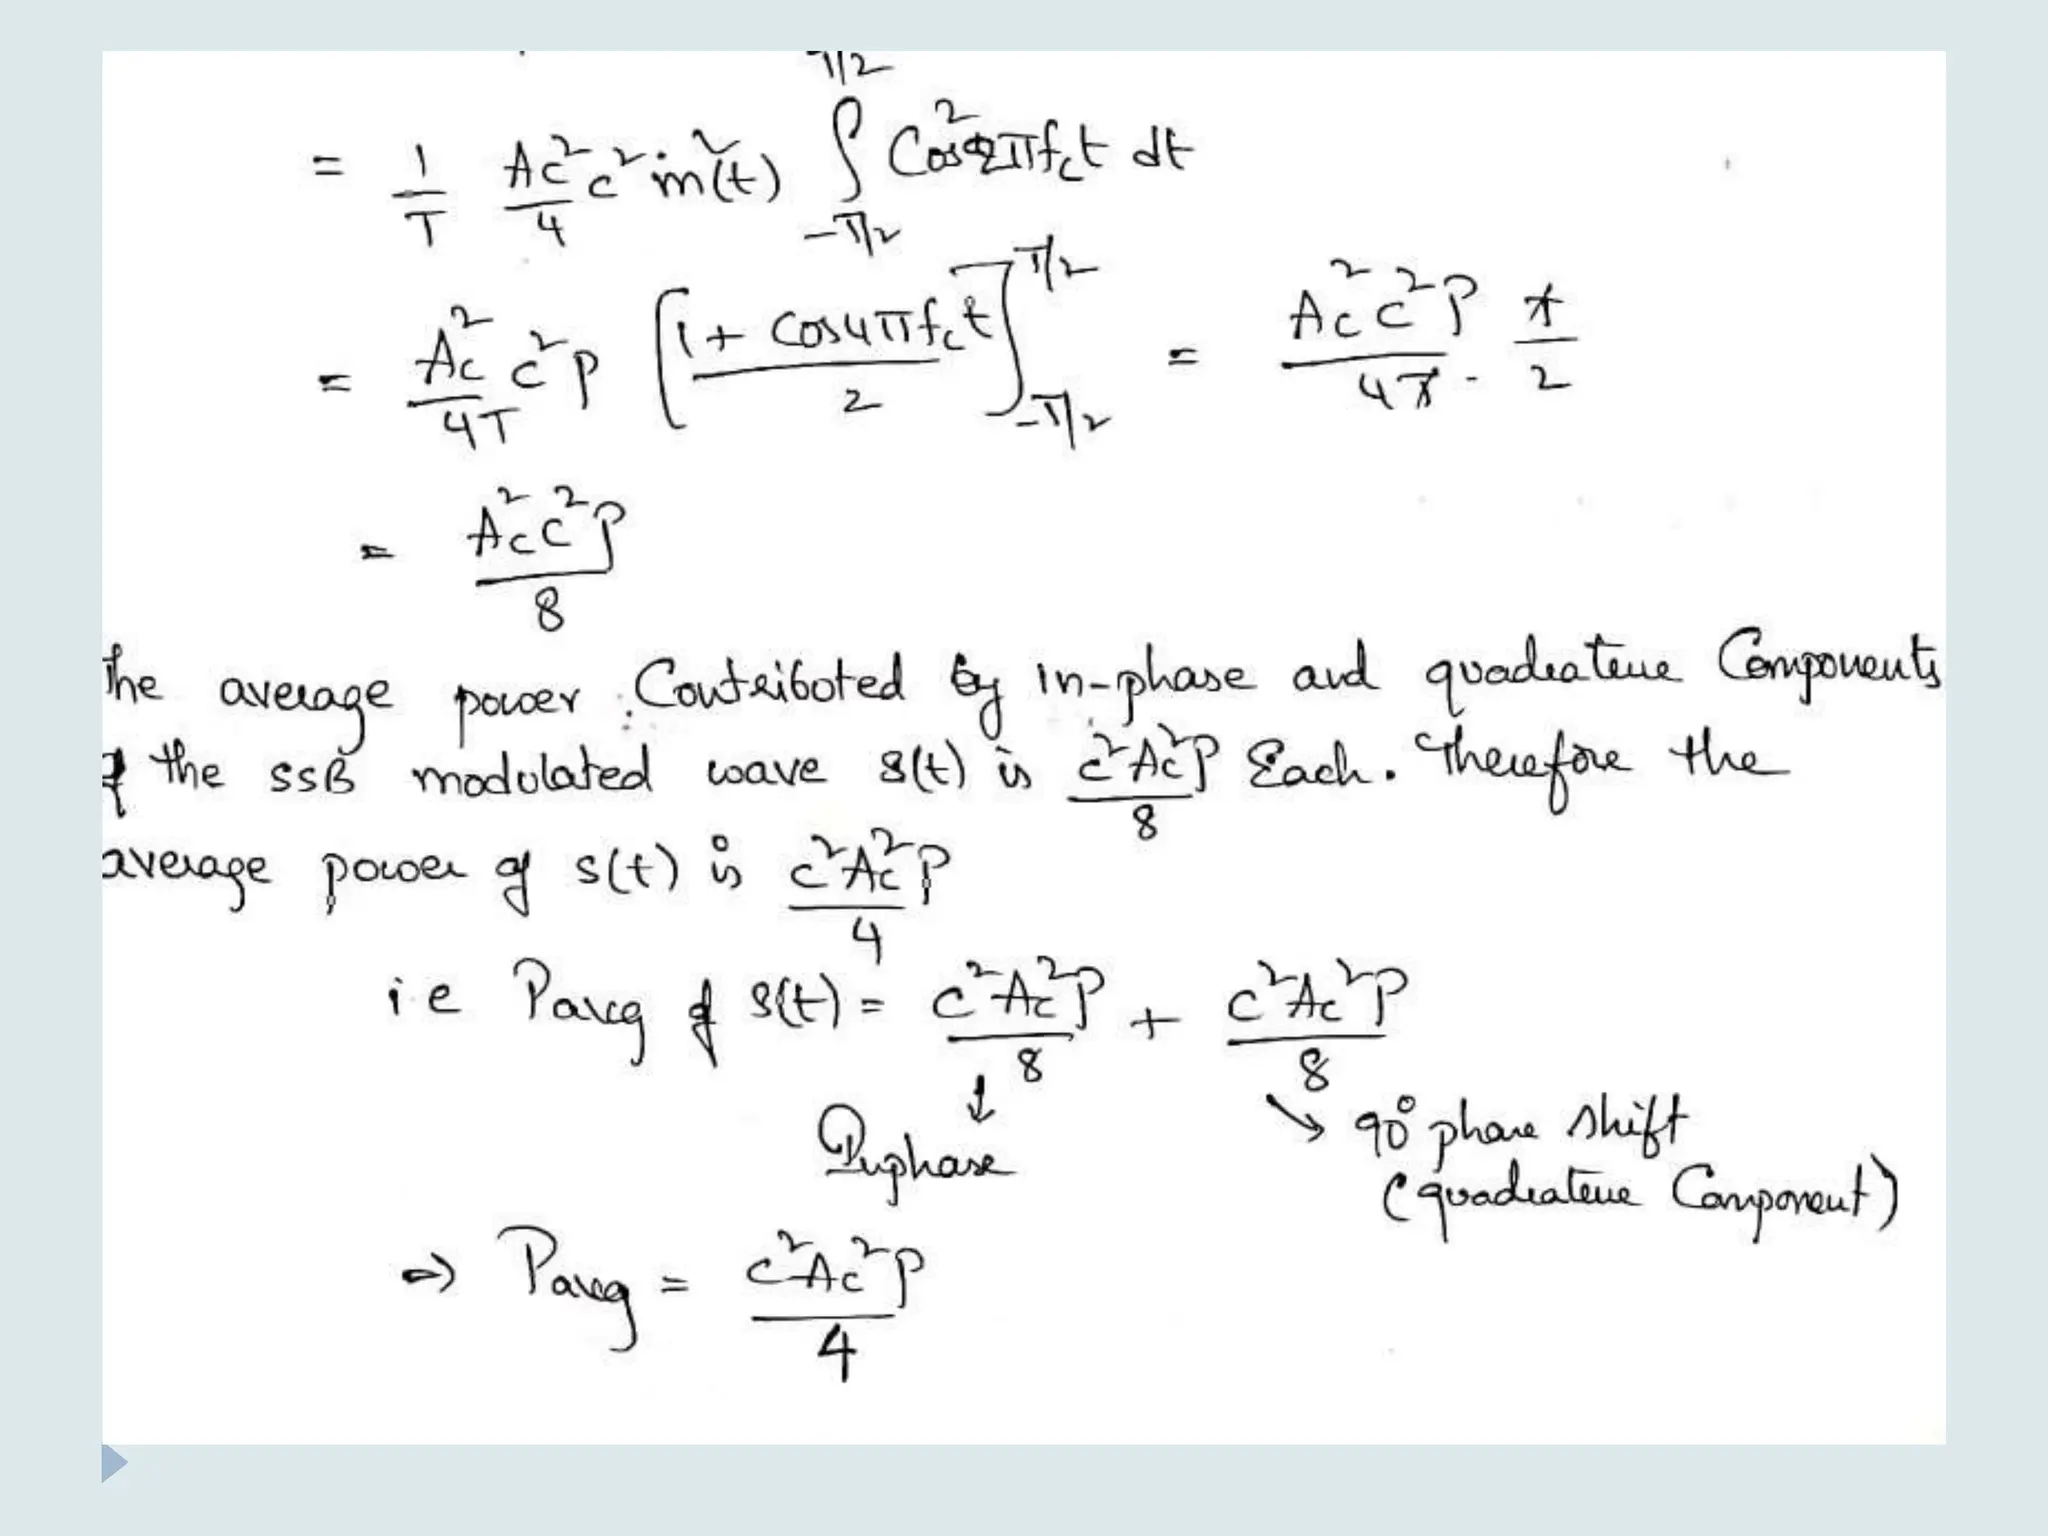 = 1/T Ac²/4 c² m²(t) ∫_{-π/2}^{π/2} Cos²2πfct dt
= Ac²/4T c²P [1 + Cos4πfct / 2]_{-π/2}^{π/2} = Ac²c²P/4π · π/2
= Ac²c²P/8
The average power Contributed by in-phase and quadrature Components
of the SSB modulated wave s(t) is c²Ac²P/8 Each. Therefore the
average power of s(t) is c²Ac²P/4
i.e Pavg of s(t) = c²Ac²P/8 + c²Ac²P/8
↓ Inphase ↘ 90° phase shift
(quadrature Component)
⇒ Pavg = c²Ac²P/4